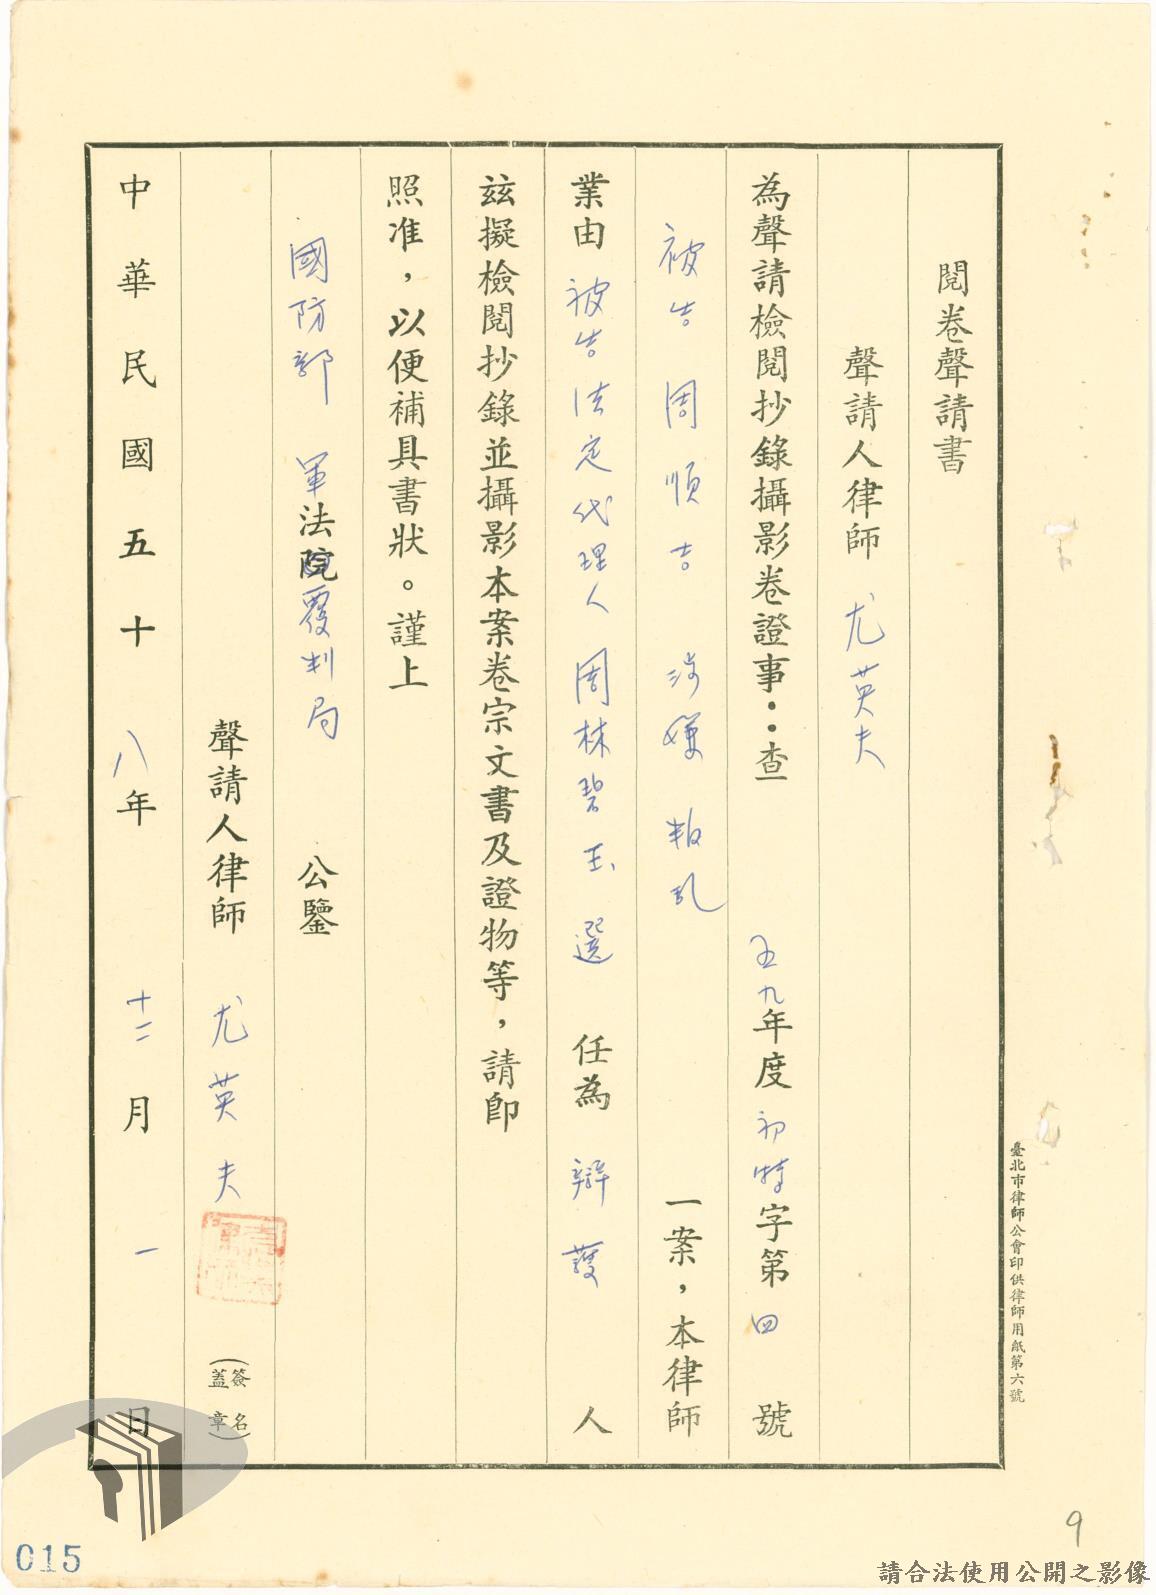 閱卷聲請書
聲請人律師 尤英夫
為聲請檢閱抄錄攝影卷證事：查 五九年度初特字第四號
被告周順吉涉嫌叛乱 一案，本律師
業由被告法定代理人周林碧玉選任為辯護人
茲擬檢閱抄錄並攝影本案卷宗文書及證物等，請卽
照准，以便補具書狀。謹上
國防部 軍法覆判局 公鑒
聲請人律師 尤英夫 (簽名蓋章)
中華民國五十八年十二月一日
臺北市律師公會印供律師用紙第六號
015
9
請合法使用公開之影像